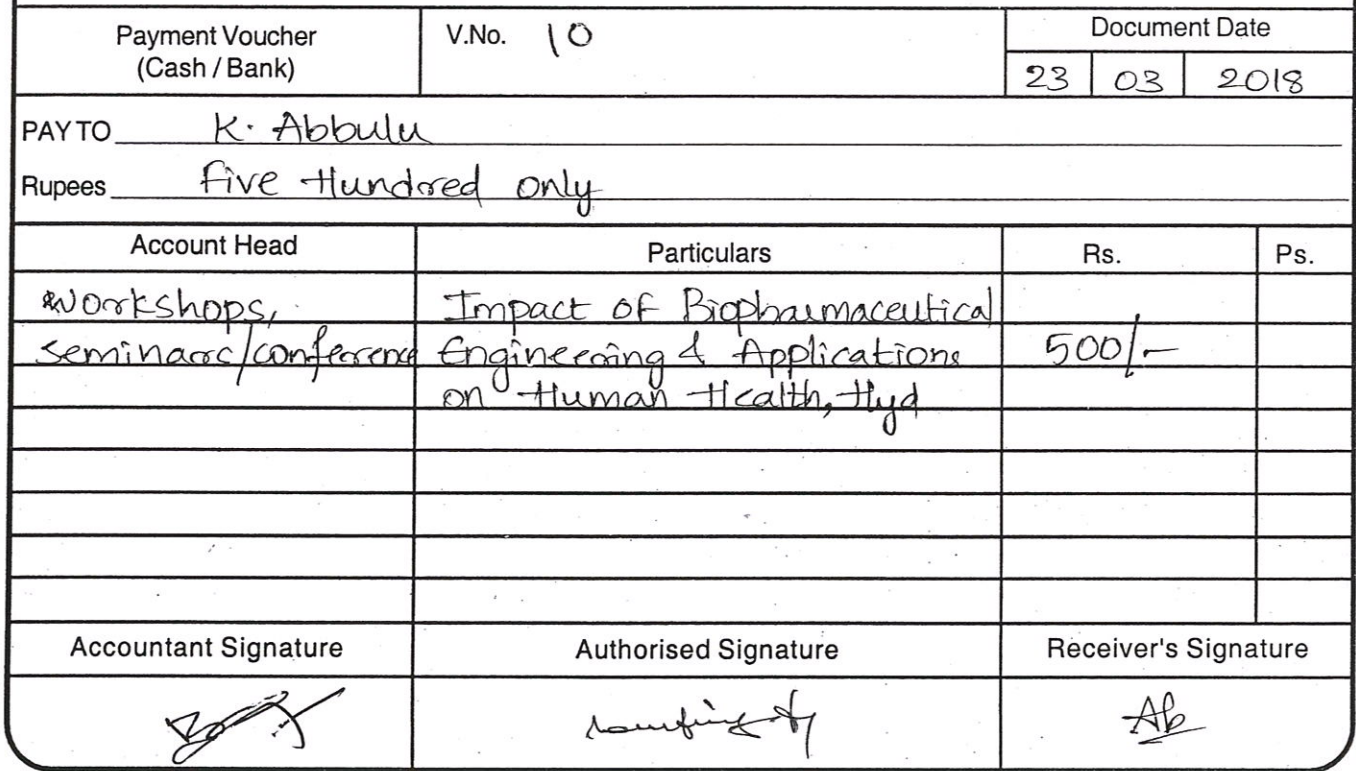 Payment Voucher
(Cash / Bank)
V.No. 10
Document Date
23 03 2018
PAY TO K. Abbulu
Rupees Five Hundred only
Account Head Particulars Rs. Ps.
Workshops, Impact of Biopharmaceutical
Seminars/conference Engineering & Applications 500/-
on Human Health, Hyd
Accountant Signature Authorised Signature Receiver's Signature
Ab